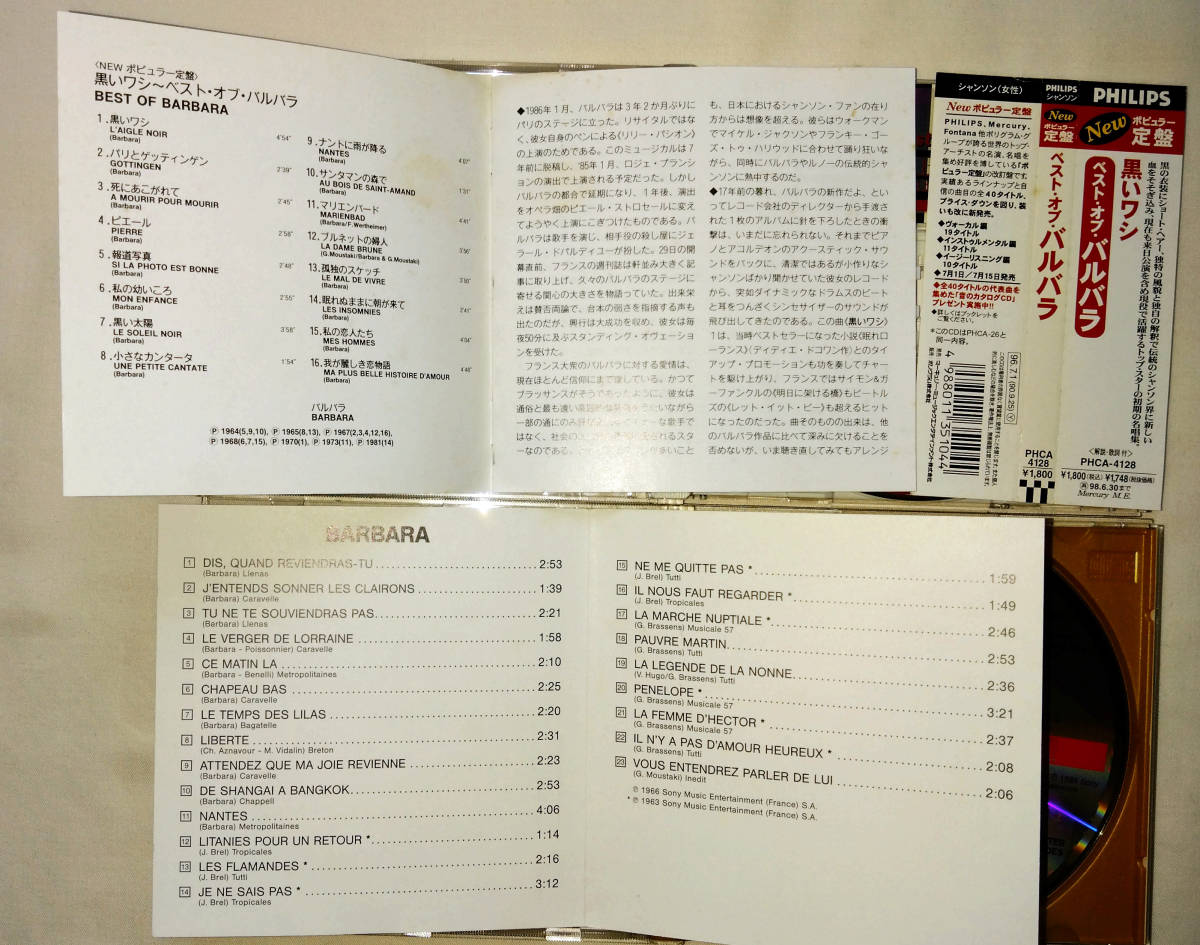 〈NEW ポピュラー定盤〉
黒いワシ〜ベスト・オブ・バルバラ
BEST OF BARBARA
1.黒いワシ
L'AIGLE NOIR
(Barbara)
4'54"
2.パリとゲッティンゲン
GOTTINGEN
(Barbara)
2'39"
3.死にあこがれて
A MOURIR POUR MOURIR
(Barbara)
2'45"
4.ピエール
PIERRE
(Barbara)
2'58"
5.報道写真
SI LA PHOTO EST BONNE
(Barbara)
2'48"
6.私の幼いころ
MON ENFANCE
(Barbara)
2'55"
7.黒い太陽
LE SOLEIL NOIR
(Barbara)
3'58"
8.小さなカンタータ
UNE PETITE CANTATE
(Barbara)
1'54"
9.ナントに雨が降る
NANTES
(Barbara)
4'07"
10.サンタマンの森で
AU BOIS DE SAINT-AMAND
(Barbara)
1'31"
11.マリエンバード
MARIENBAD
(Barbara/F.Wertheimer)
4'41"
12.ブルネットの婦人
LA DAME BRUNE
(G.Moustaki/Barbara & G.Moustaki)
3'56"
13.孤独のスケッチ
LE MAL DE VIVRE
(Barbara)
14.眠れぬままに朝が来て
LES INSOMNIES
(Barbara)
2'41"
15.私の恋人たち
MES HOMMES
(Barbara)
4'04"
16.我が麗しき恋物語
MA PLUS BELLE HISTOIRE D'AMOUR
(Barbara)
4'48"
バルバラ
BARBARA
Ⓟ 1964(5,9,10), Ⓟ 1965(8,13), Ⓟ 1967(2,3,4,12,16),
Ⓟ 1968(6,7,15), Ⓟ 1970(1), Ⓟ 1973(11), Ⓟ 1981(14)
◆1986年1月、バルバラは3年2か月ぶりに
パリのステージに立った。リサイタルではな
く、彼女自身のペンによる〈リリー・パシオン〉
の上演のためである。このミュージカルは7
年前に脱稿し、'85年1月、ロジェ・プランシ
ョンの演出で上演される予定だった。しかし
バルバラの都合で延期になり、1年後、演出
をオペラ畑のピエール・ストロセールに変え
てようやく上演にこぎつけたものである。バ
ルバラは歌手を演じ、相手役の殺し屋にジェ
ラール・ドパルディユーが扮した。29日の開
幕直前、フランスの週刊誌は軒並み大きく記
事に取り上げ、久々のバルバラのステージに
寄せる関心の大きさを物語っていた。出来栄
えは賛否両論で、台本の弱さを指摘する声も
出たのだが、興行は大成功を収め、彼女は毎
夜50分に及ぶスタンディング・オヴェーショ
ンを受けた。
フランス大衆のバルバラに対する愛情は、
現在ほとんど信仰にまで達している。かつて
ブラッサンスがそうであったように、彼女は
通俗と最も遠い にいながら
一部の通にのみ な歌手で
はなく、社会の されるスタ
ーなのである。 が多いこと
も、日本におけるシャンソン・ファンの在り
方からは想像を超える。彼らはウォークマン
でマイケル・ジャクソンやフランキー・ゴー
ズ・トゥ・ハリウッドに合わせて踊り狂いな
がら、同時にバルバラやルノーの伝統的シャ
ンソンに熱中するのだ。
◆17年前の暮れ、バルバラの新作だよ、とい
ってレコード会社のディレクターから手渡さ
れた1枚のアルバムに針を下ろしたときの衝
撃は、いまだに忘れられない。それまでピア
ノとアコルデオンのアクースティック・サウ
ンドをバックに、清潔ではあるが小作りなシ
ャンソンばかり聞かせていた彼女のレコード
から、突如ダイナミックなドラムスのビート
と耳をつんざくシンセサイザーのサウンドが
飛び出してきたのである。この曲〈黒いワシ〉
1は、当時ベストセラーになった小説〈眠れロ
ーランス〉(ディディエ・ドコワン作)とのタイ
アップ・プロモーションも功を奏してチャー
トを駆け上がり、フランスではサイモン&ガ
ーファンクルの〈明日に架ける橋〉もビートル
ズの〈レット・イット・ビー〉も超えるヒット
になったのだった。曲そのものの出来は、他
のバルバラ作品に比べて深みに欠けることを
否めないが、いま聴き直してみてもアレンジ
シャンソン(女性)
New ポピュラー定盤
PHILIPS、Mercury、
Fontana他ポリグラム・グ
ループが誇る世界のトップ・
アーチストの名演、名唱を
集め好評を博している『ポ
ピュラー定盤』の改訂盤です。
実績あるラインナップと自
信の曲目の全40タイトル。
プライス・ダウンを図り、装
いも改に新発売。
◆ヴォーカル編
19タイトル
◆インストゥルメンタル編
11タイトル
◆イージーリスニング編
10タイトル
◆7月1日/7月15日発売
◆全40タイトルの代表曲を
集めた「音のカタログCD」
プレゼント実施中!!
◆詳しくはブックレットを
ご覧ください。
*このCDはPHCA-26と
同一内容。
4 988011 351044
'96.7.1 (90.9.25)
PHILIPS
シャンソン
New
ポピュラー
定盤
ベスト・オブ・バルバラ
PHCA
4128
¥1,800
PHILIPS
New
ポピュラー
定盤
黒いワシ
ベスト・オブ・バルバラ
黒の衣装にショート・ヘアー、独特の風貌と独自の解釈で伝統のシャンソン界に新しい
血をそそぎ込み、現在も来日公演を含め現役で活躍するトップ・スターの初期の名唱集。
〈解説・歌詞付〉
PHCA-4128
¥1,800(税込) ¥1,748(税抜価格)
98.6.30まで
Mercury M.E.
BARBARA
1 DIS, QUAND REVIENDRAS-TU 2:53
(Barbara) Llenas
2 J'ENTENDS SONNER LES CLAIRONS 1:39
(Barbara) Caravelle
3 TU NE TE SOUVIENDRAS PAS 2:21
(Barbara) Llenas
4 LE VERGER DE LORRAINE 1:58
(Barbara - Poissonnier) Caravelle
5 CE MATIN LA 2:10
(Barbara - Benelli) Metropolitaines
6 CHAPEAU BAS 2:25
(Barbara) Caravelle
7 LE TEMPS DES LILAS 2:20
(Barbara) Bagatelle
8 LIBERTE 2:31
(Ch. Aznavour - M. Vidalin) Breton
9 ATTENDEZ QUE MA JOIE REVIENNE 2:23
(Barbara) Caravelle
10 DE SHANGAI A BANGKOK 2:53
(Barbara) Chappell
11 NANTES 4:06
(Barbara) Metropolitaines
12 LITANIES POUR UN RETOUR * 1:14
(J. Brel) Tropicales
13 LES FLAMANDES * 2:16
(J. Brel) Tutti
14 JE NE SAIS PAS * 3:12
(J. Brel) Tropicales
15 NE ME QUITTE PAS * 1:59
(J. Brel) Tutti
16 IL NOUS FAUT REGARDER * 1:49
(J. Brel) Tropicales
17 LA MARCHE NUPTIALE * 2:46
(G. Brassens) Musicale 57
18 PAUVRE MARTIN 2:53
(G. Brassens) Tutti
19 LA LEGENDE DE LA NONNE 2:36
(V. Hugo/G. Brassens) Tutti
20 PENELOPE * 3:21
(G. Brassens) Musicale 57
21 LA FEMME D'HECTOR * 2:37
(G. Brassens) Musicale 57
22 IL N'Y A PAS D'AMOUR HEUREUX * 2:08
(G. Brassens) Tutti
23 VOUS ENTENDREZ PARLER DE LUI 2:06
(G. Moustaki) Inedit
℗ 1966 Sony Music Entertainment (France) S.A.
* ℗ 1963 Sony Music Entertainment (France) S.A.